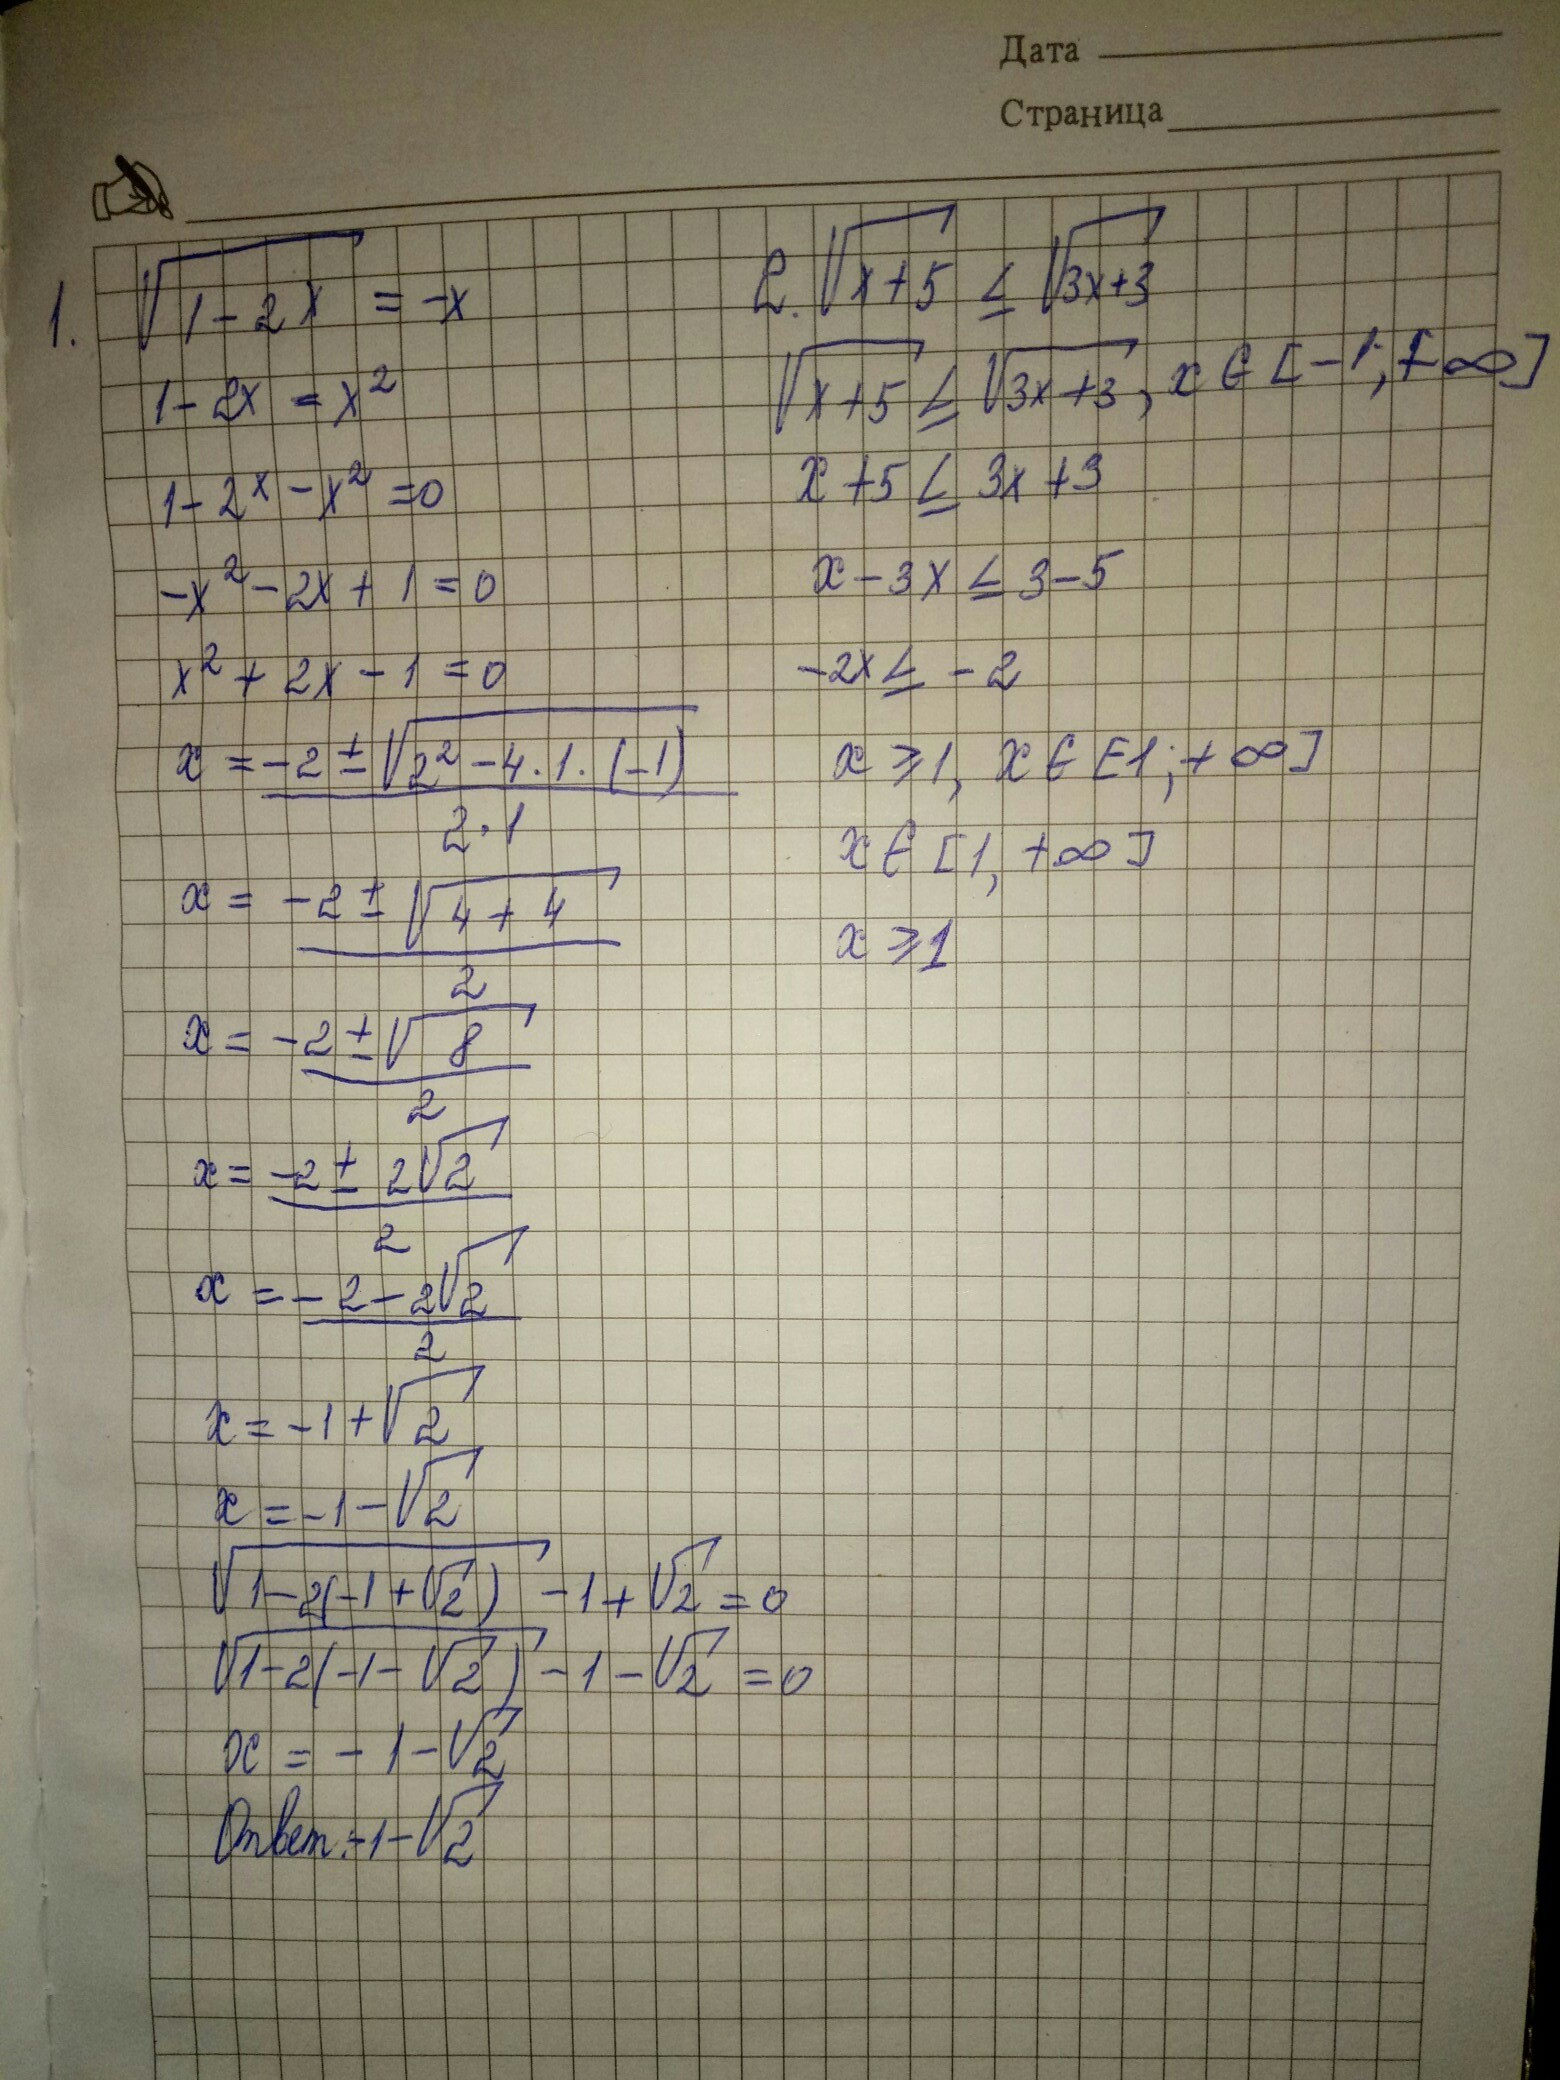 Дата
Страница
1. √(1-2x) = -x
1-2x = x²
1-2x-x² = 0
-x²-2x+1=0
x²+2x-1=0
x = (-2±√(2²-4·1·(-1)))/(2·1)
x = (-2±√(4+4))/2
x = (-2±√8)/2
x = (-2±2√2)/2
x = (-2-2√2)/2
x = -1+√2
x = -1-√2
√(1-2(-1+√2)) -1+√2 = 0
√(1-2(-1-√2)) -1-√2 = 0
x = -1-√2
Ответ: -1-√2
2. √(x+5) ≤ √(3x+3)
√(x+5) ≤ √(3x+3), x∈[-1;+∞]
x+5 ≤ 3x+3
x-3x ≤ 3-5
-2x ≤ -2
x ⩾ 1, x∈[1;+∞]
x∈[1,+∞]
x ⩾ 1